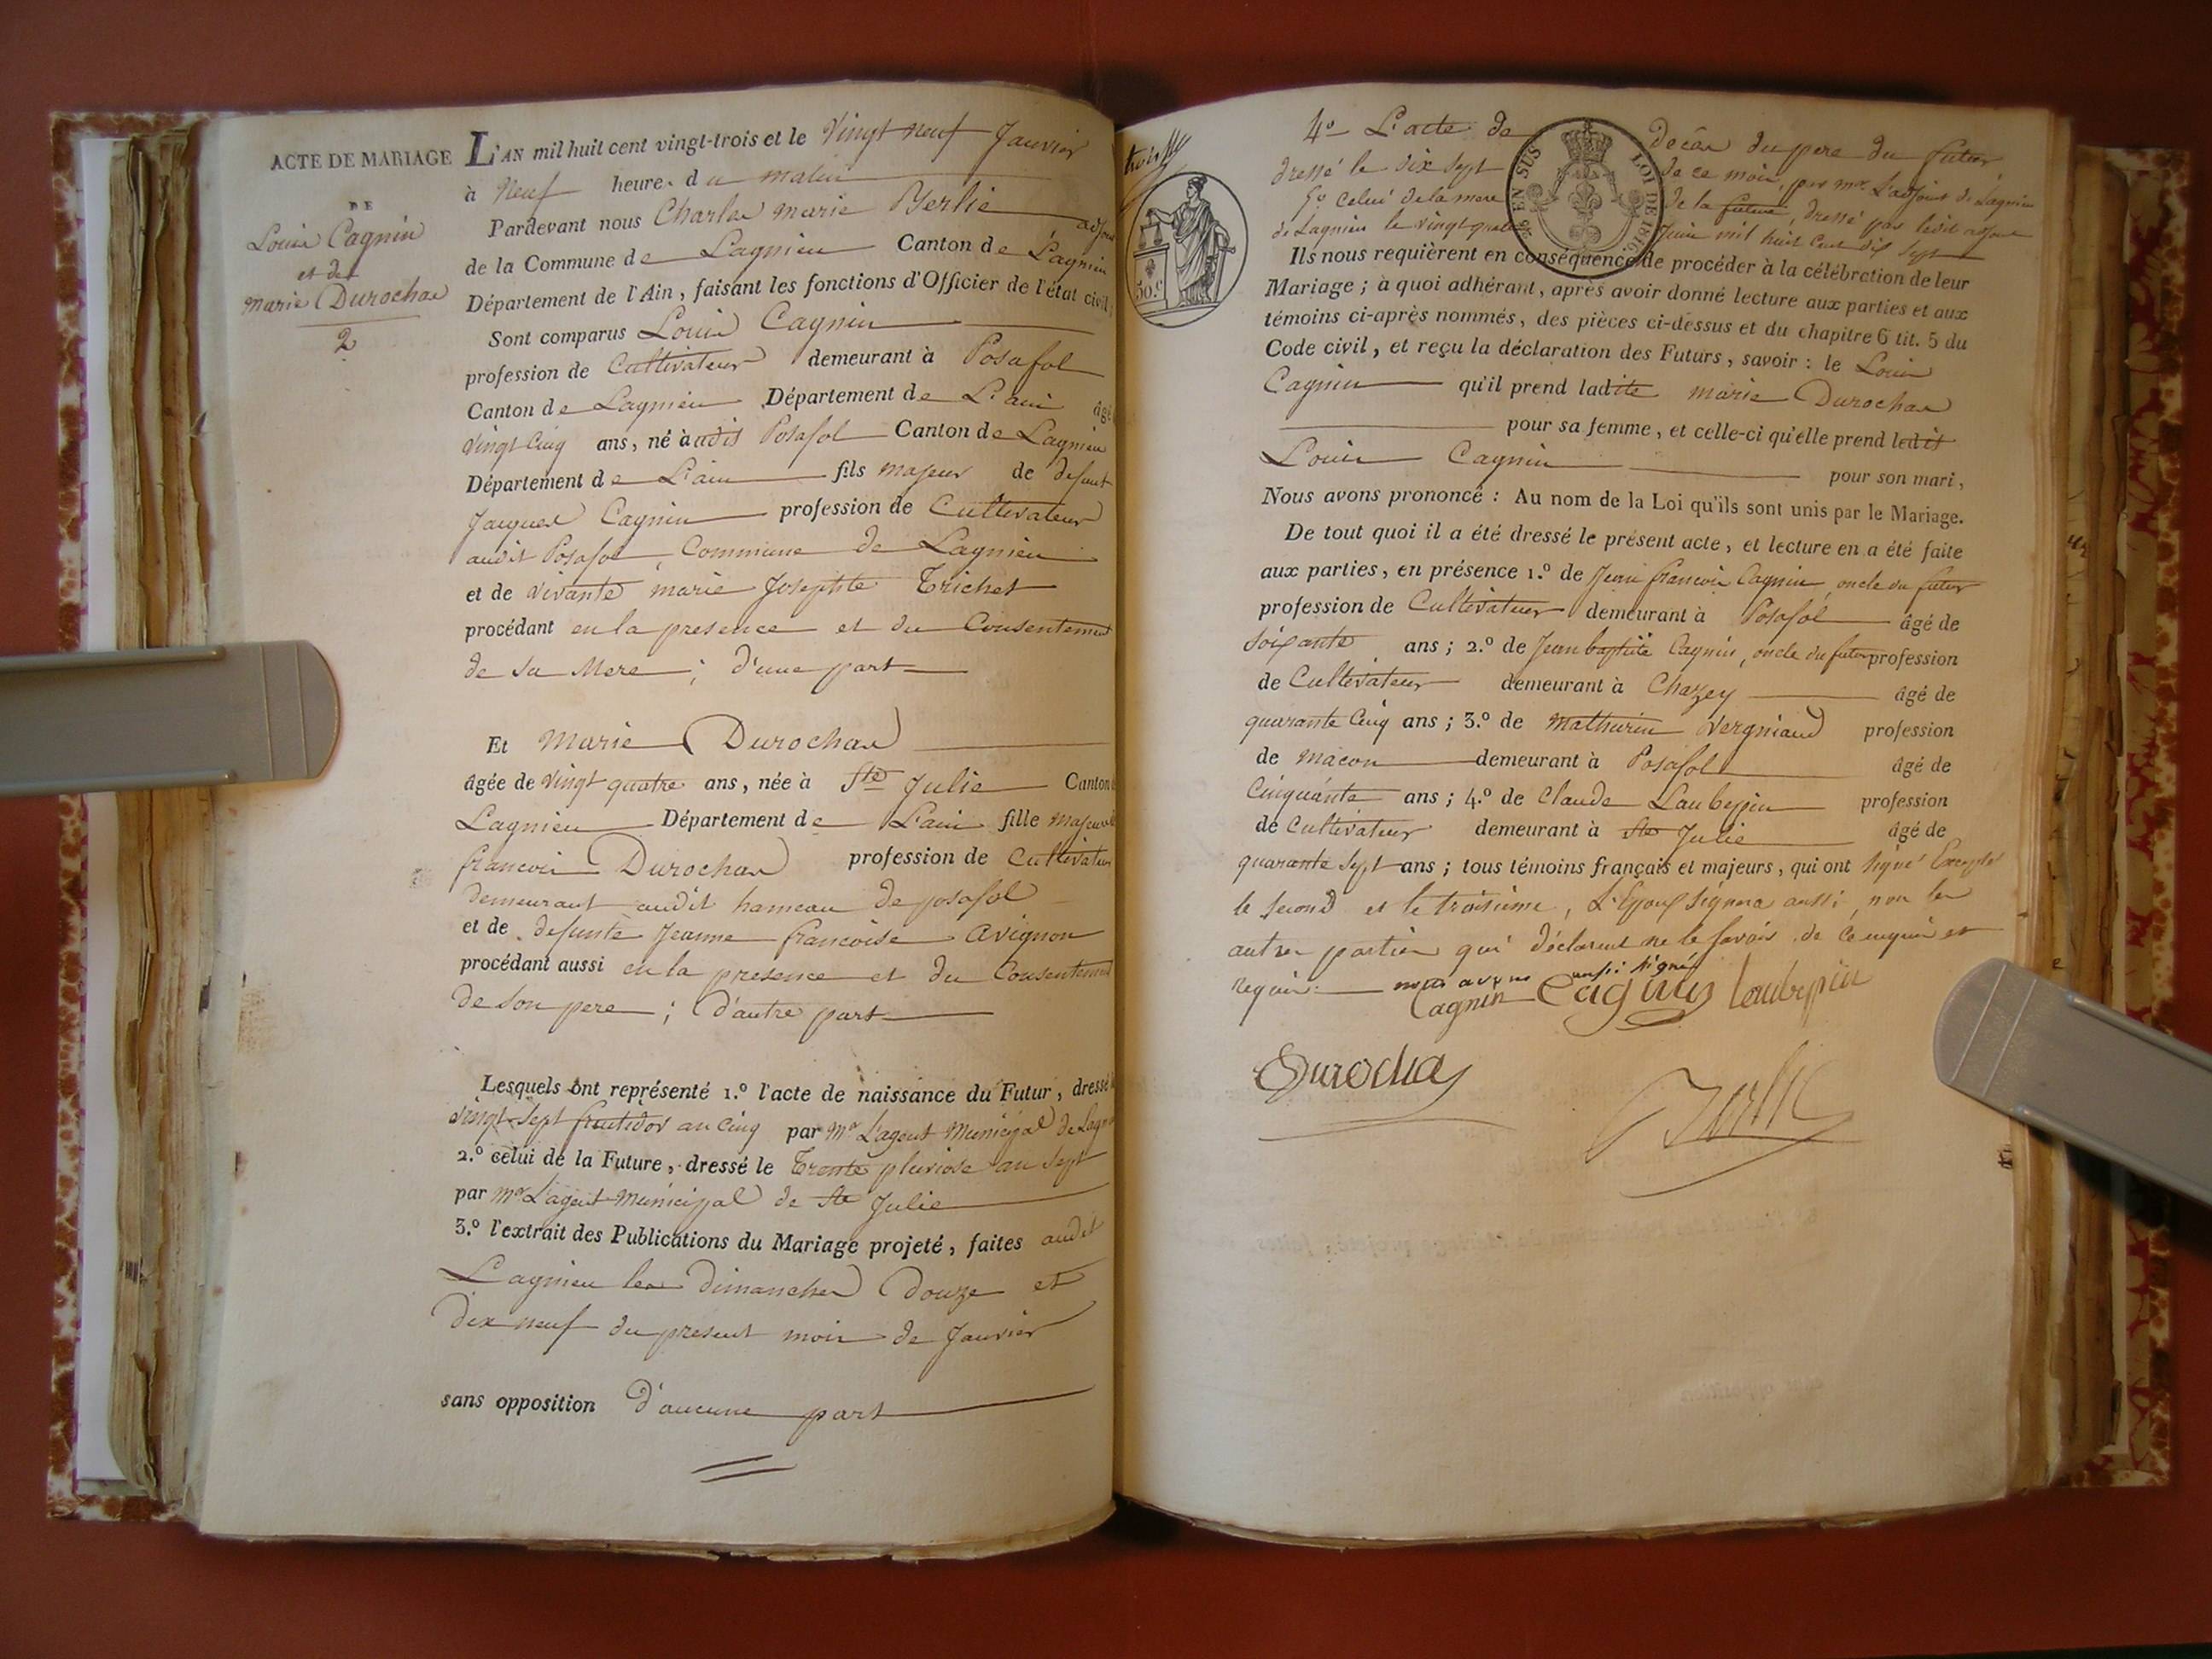 ACTE DE MARIAGE
DE
Louis Cagnin
et de
marie Durochas
2
L'AN mil huit cent vingt-trois et le Vingt neuf Janvier
à Neuf heures du matin
Pardevant nous Charles marie Yerlie adjoint
de la Commune de Lagnieu Canton de Lagnieu
Département de l'Ain, faisant les fonctions d'Officier de l'état civil,
Sont comparus Louis Cagnin
profession de Cultivateur demeurant à Posafol
Canton de Lagnieu Département de L'ain âgé
vingt Cinq ans, né à audit Posafol Canton de Lagnieu
Département de L'ain fils majeur de defunt
Jacques Cagnin profession de Cultivateur
audit Posafol, Commune de Lagnieu
et de vivante marie Josephte Trichet
procédant en la presence et du Consentement
de sa Mere ; d'une part
Et Marie Durochas
âgée de vingt quatre ans, née à Ste Julie Canton
Lagnieu Département de L'ain fille majeure
francois Durochas profession de Cultivateur
demeurant audit hameau de posafol
et de defunte Jeanne francoise Avignon
procédant aussi en la presence et du Consentement
de son pere ; d'autre part
Lesquels ont représenté 1.º l'acte de naissance du Futur, dressé
vingt-sept fructidor an cinq par Mr L'agent Municipal de Lagn
2.º celui de la Future, dressé le Trente pluviose an sept
par Mr L'agent Municipal de Ste Julie
3.º l'extrait des Publications du Mariage projeté, faites audit
Lagnieu les dimanches Douze et
Dix neuf du present mois de Janvier
sans opposition d'aucune part
30 c
EN SUS LOI DE 1816.
4º L'acte de décès du pere du futur
dressé le dix sept de ce mois, par mr. L'adjoint de Lagnieu
5º Celui de la mere de la future, dressé par ledit adjoint
de Lagnieu le vingt quatre Juin mil huit Cent dix sept
Ils nous requièrent en conséquence de procéder à la célébration de leur
Mariage ; à quoi adhérant, après avoir donné lecture aux parties et aux
témoins ci-après nommés, des pièces ci-dessus et du chapitre 6 tit. 5 du
Code civil, et reçu la déclaration des Futurs, savoir : le Louis
Cagnin qu'il prend ladite marie Durochas
pour sa femme, et celle-ci qu'elle prend ledit
Louis Cagnin pour son mari,
Nous avons prononcé : Au nom de la Loi qu'ils sont unis par le Mariage.
De tout quoi il a été dressé le présent acte, et lecture en a été faite
aux parties, en présence 1.º de Jean francois Cagnin, oncle du futur
profession de Cultivateur demeurant à Posafol âgé de
soixante ans ; 2.º de Jean baptiste Cagnin, oncle du futur profession
de Cultivateur demeurant à Chazey âgé de
quarante Cinq ans ; 3.º de Mathurin Vergniaud profession
de macon demeurant à Posafol âgé de
Cinquante ans ; 4.º de Claude Laubepin profession
de Cultivateur demeurant à Ste Julie âgé de
quarante sept ans ; tous témoins français et majeurs, qui ont signé Excepté
le second et le troisieme, L'Epoux signera aussi, non les
autres parties qui déclarent ne le savoir de ce enquis et
requis: nous avons aussi signé
Cagnin Cagnin Loubepin
Durochas Yerlie